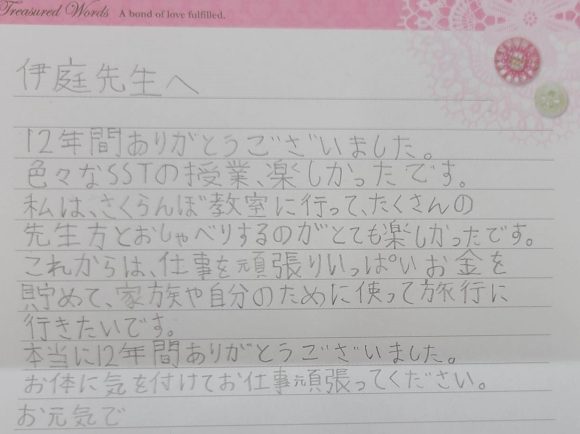 Treasured Words A bond of love fulfilled.
伊庭先生へ
12年間ありがとうございました。
色々なSSTの授業、楽しかったです。
私は、さくらんぼ教室に行って、たくさんの
先生方とおしゃべりするのがとても楽しかったです。
これからは、仕事を頑張りいっぱいお金を
貯めて、家族や自分のために使って旅行に
行きたいです。
本当に12年間ありがとうございました。
お体に気を付けてお仕事頑張ってください。
お元気で